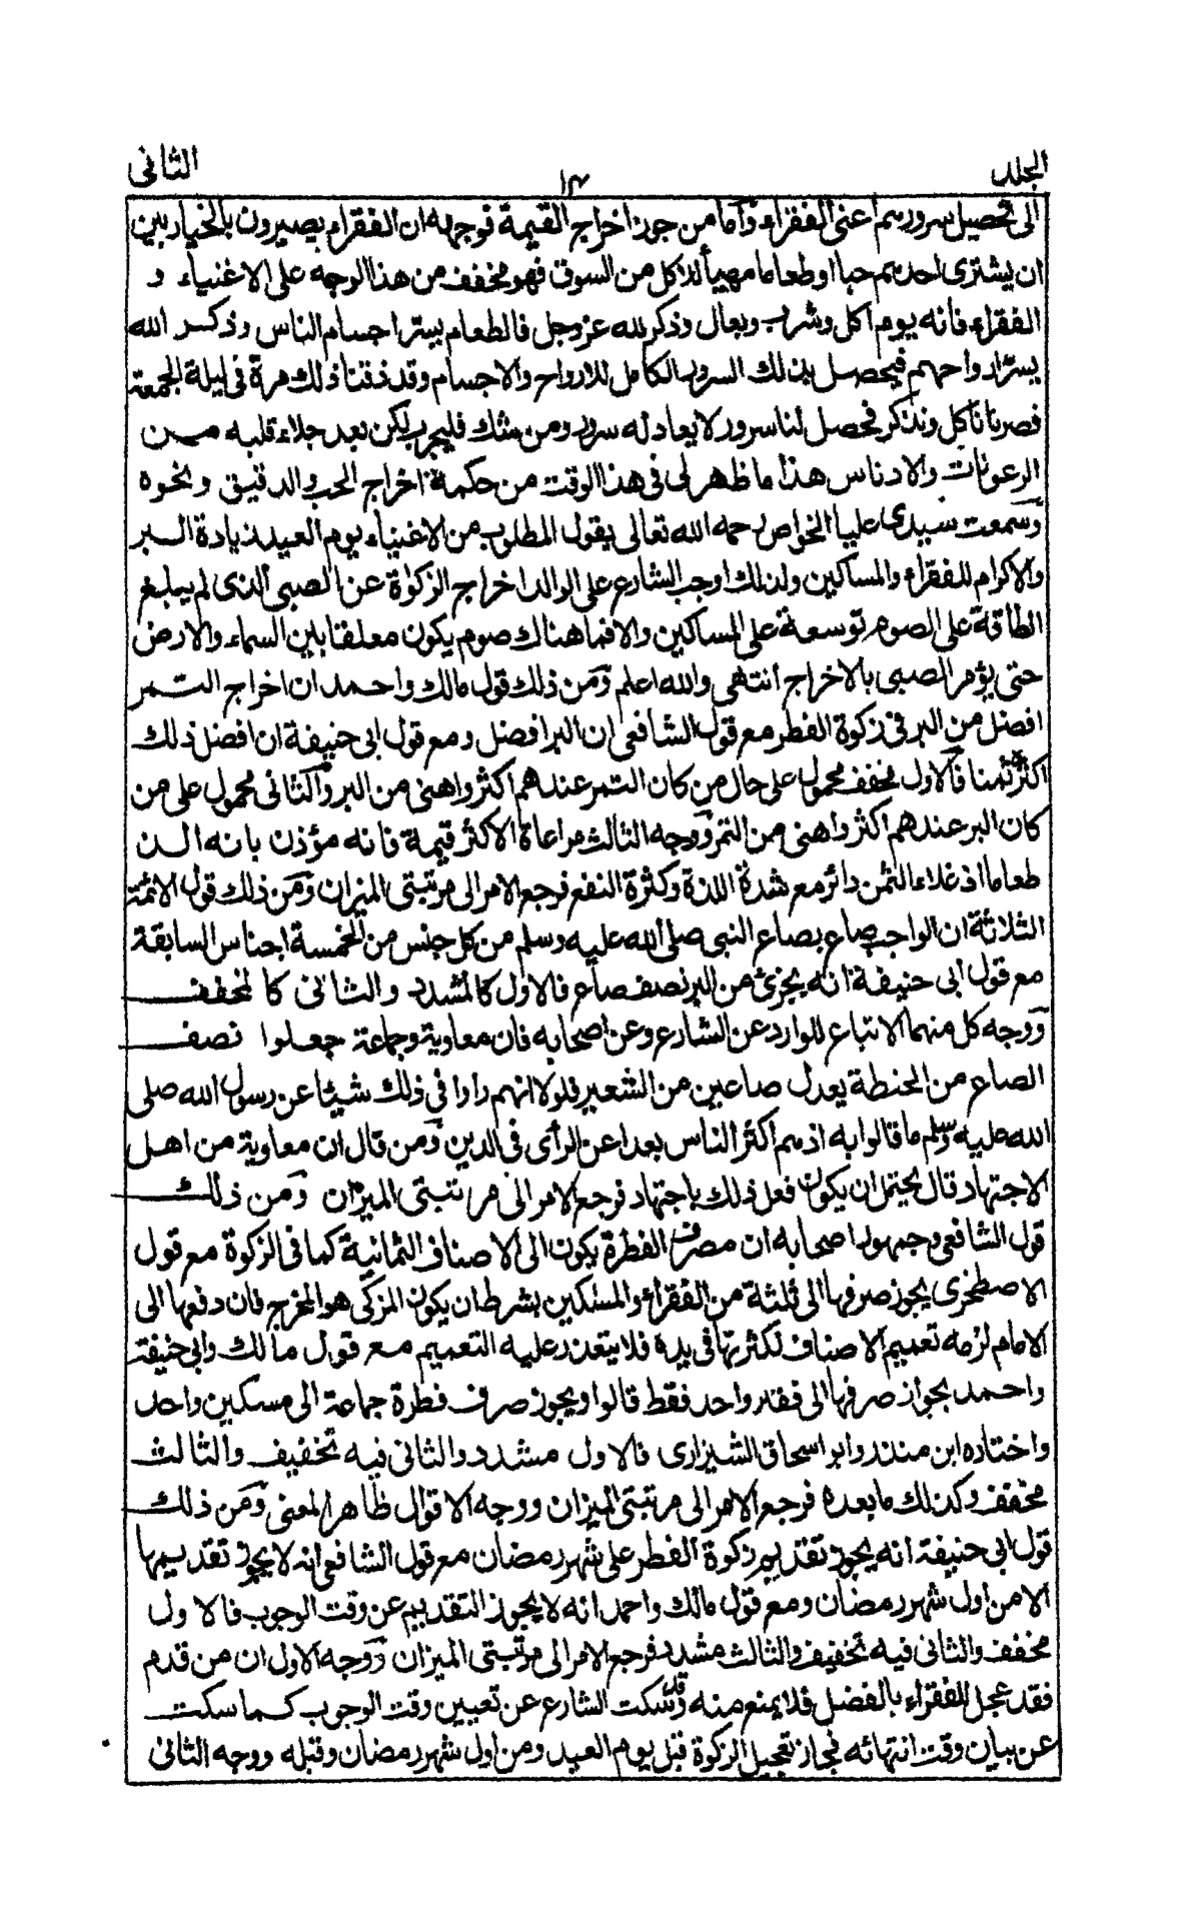 الجلد
١٣
الثانى
الى تحصيل سرورهم أعنى الفقراء وأما من جوز اخراج القيمة فوجهه ان الفقراء يصيرون بالخيار بين
ان يشترى احدهم حبا او طعاما مهيأ للاكل من السوق فهو مخفف من هذا الوجه على الاغنياء و
الفقراء فانه يوم اكل وشرب وبعال وذكر لله عز وجل فالطعام يسر اجسام الناس وذكر الله
يسر ارواحهم فيحصل بذلك السرور الكامل للارواح والاجسام وقد ذقنا ذلك مرة فى ليلة الجمعة
فصرنا نأكل ونذكر فحصل لنا سرور لا يعادله سرور ومن شك فليجرب لكن بعد جلاء قلبه مـن
الرعونات والادناس هذا ما ظهر لى فى هذا الوقت من حكمة اخراج الحب والدقيق ونحوه
وسمعت سيدى عليا الخواص رحمه الله تعالى يقول المطلوب من الاغنياء يوم العيد زيادة الـبر
والاكرام للفقراء والمساكين ولذلك اوجب الشارع على الوالد اخراج الزكوة عن الصبى الذى لم يبلغ
الطاقة على الصوم توسعة على المساكين والا فما هناك صوم يكون معلقا بين السماء والارض
حتى يؤمر الصبى بالاخراج انتهى والله اعلم ومن ذلك قول مالك واحمد ان اخراج التمر
افضل من البر فى زكوة الفطر مع قول الشافعى ان البر افضل ومع قول ابى حنيفة ان افضل ذلك
اكثر ثمنا فالاول مخفف محمول على حال من كان التمر عندهم اكثر واهنى من البر والثانى محمول على من
كان البر عندهم اكثر واهنى من التمر ووجه الثالث مراعاة الاكثر قيمة فانه مؤذن بانه الذ
طعاما اذ غلاء الثمن دائر مع شدة اللذة وكثرة النفع فرجع الامر الى مرتبتى الميزان ومن ذلك قول الائمة
الثلاثة ان الواجب صاع بصاع النبى صلى الله عليه وسلم من كل جنس من الخمسة اجناس السابقة
مع قول ابى حنيفة انه يجزئ من البر نصف صاع فالاول كالمشدد والثانى كالمخفف
ووجه كل منهما الاتباع للوارد عن الشارع وعن اصحابه فان معاوية وجماعة جعلوا نصف
الصاع من الحنطة يعدل صاعين من الشعير فلولا انهم رأوا فى ذلك شيئا عن رسول الله صلى
الله عليه وسلم ما قالوا به اذ هم اكثر الناس بعدا عن الرأى فى الدين ومن قال ان معاوية من اهـل
الاجتهاد قال يحتمل ان يكون فعل ذلك باجتهاد فرجع الامر الى مرتبتى الميزان ومن ذلك
قول الشافعى وجمهور اصحابه ان مصرف الفطرة يكون الى الاصناف الثمانية كما فى الزكوة مع قول
الاصطخرى يجوز صرفها الى ثلثة من الفقراء والمسكين بشرط ان يكون المزكى هو المخرج فان دفعها الى
الامام لزمه تعميم الاصناف لكثرتها فى يده فلا يتعذر عليه التعميم مع قول مالك وابى حنيفة
واحمد بجواز صرفها الى فقير واحد فقط قالوا ويجوز صرف فطرة جماعة الى مسكين واحد
واختاره ابن منذر وابو اسحاق الشيزارى فالاول مشدد والثانى فيه تخفيف والثالث
مخفف وكذلك ما بعده فرجع الامر الى مرتبتى الميزان ووجه الاقوال ظاهر المعنى ومن ذلك
قول ابى حنيفة انه يجوز تقديم زكوة الفطر على شهر رمضان مع قول الشافعى انه لا يجوز تقديمها
الا من اول شهر رمضان ومع قول مالك واحمد انه لا يجوز التقديم عن وقت الوجوب فالاول
مخفف والثانى فيه تخفيف والثالث مشدد فرجع الامر الى مرتبتى الميزان ووجه الاول ان من قدم
فقد عجل للفقراء بالفضل فلا يمنع منه وقد سكت الشارع عن تعيين وقت الوجوب كما سكت
عن بيان وقت انتهائه فجاز تعجيل الزكوة قبل يوم العيد ومن اول شهر رمضان وقبله ووجه الثانى